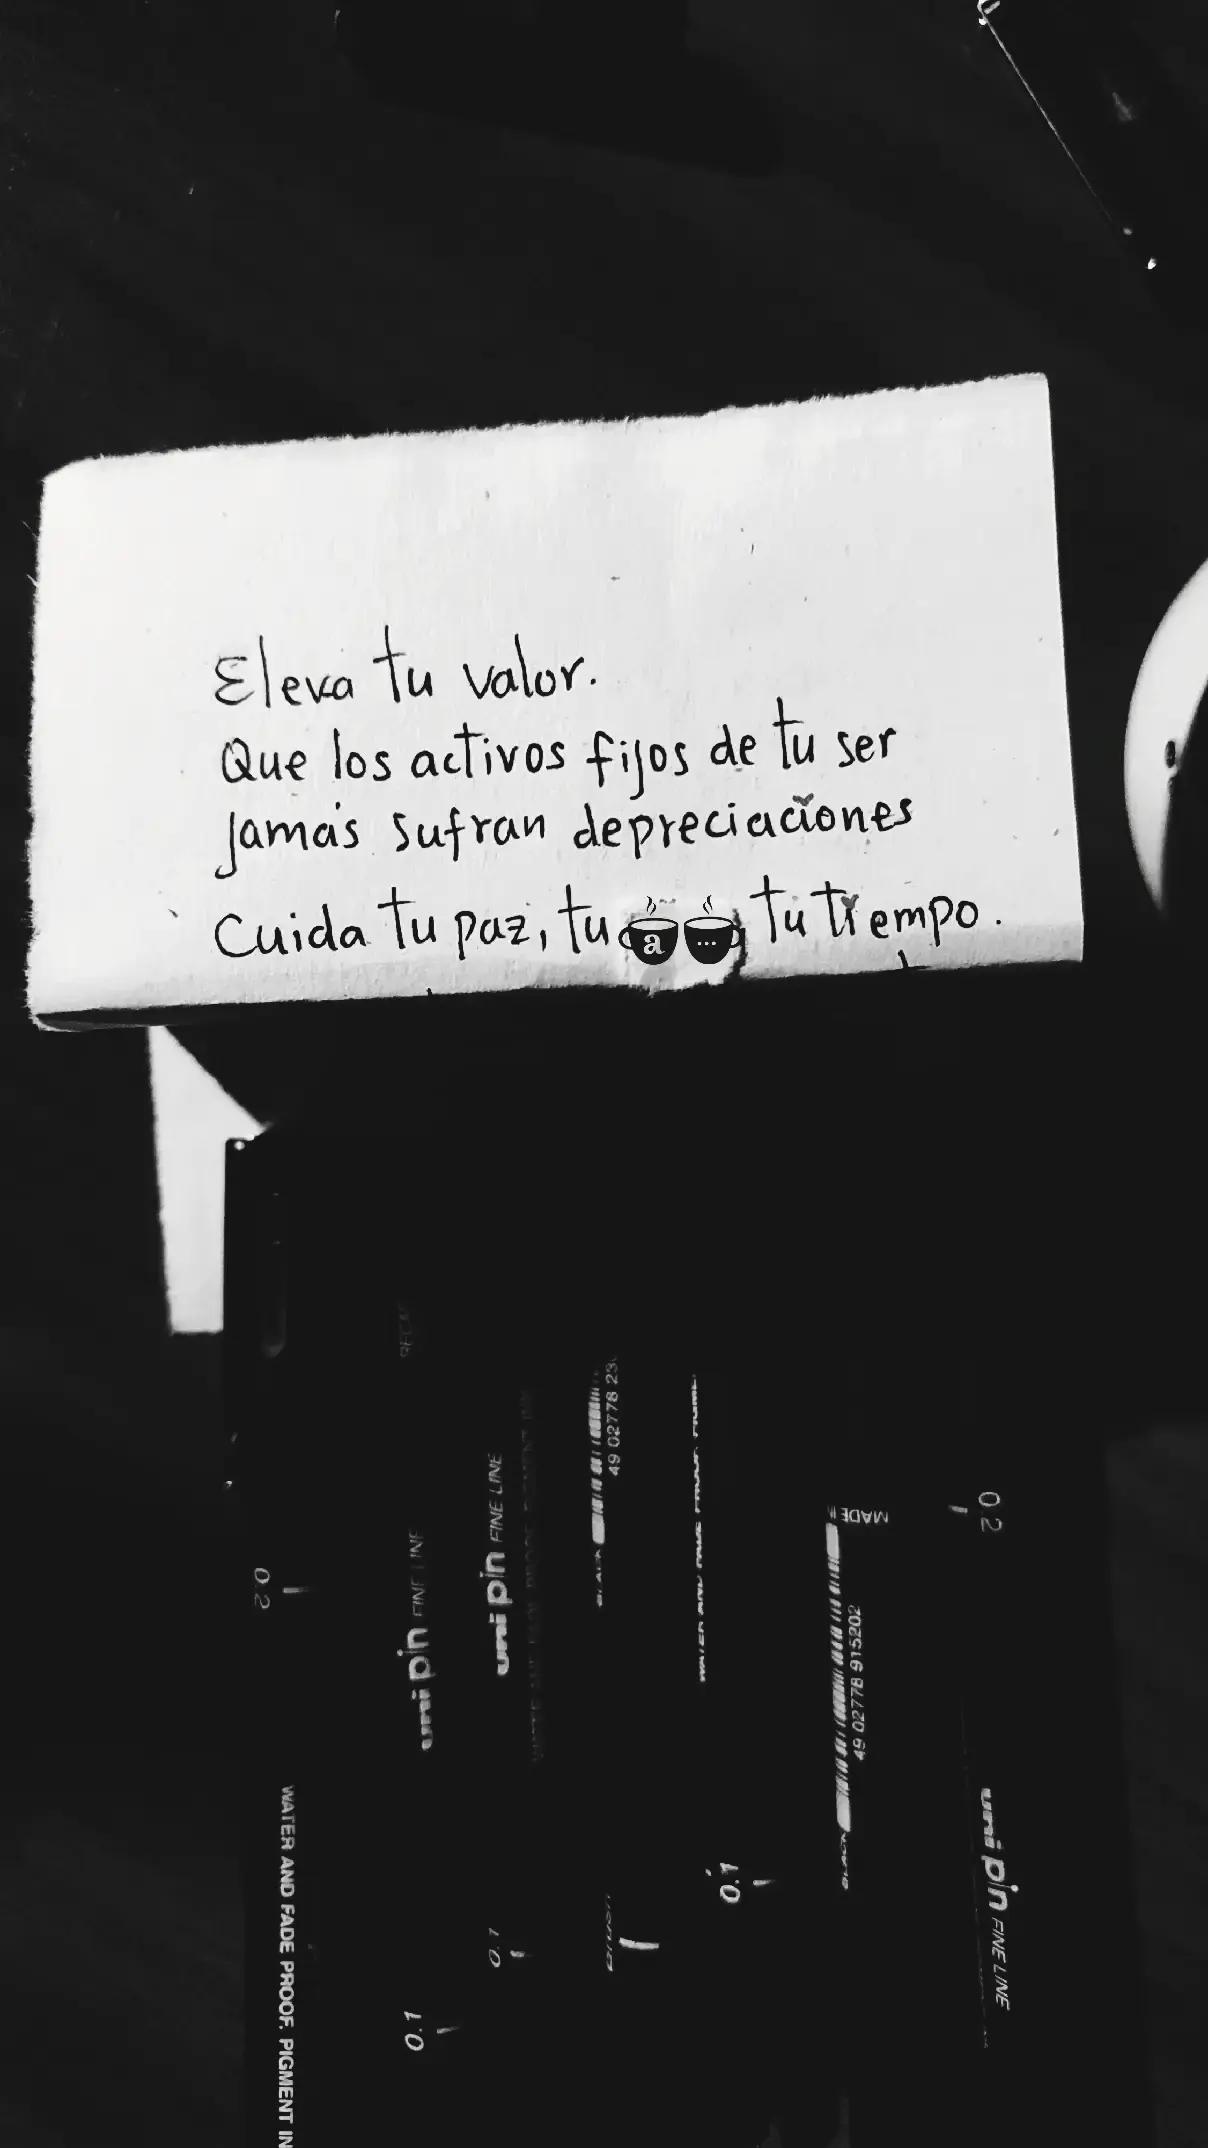 Eleva tu valor.
Que los activos fijos de tu ser
jamás sufran depreciaciones
Cuida tu paz, tu a ... tu tiempo.
49 02778 23
uni pin FINE LINE
uni pin FINE LINE
MADE
0.2
0.2
49 02778 915202
uni pin FINE LINE
WATER AND FADE PROOF, PIGMENT IN
0.1
0.1
0.1